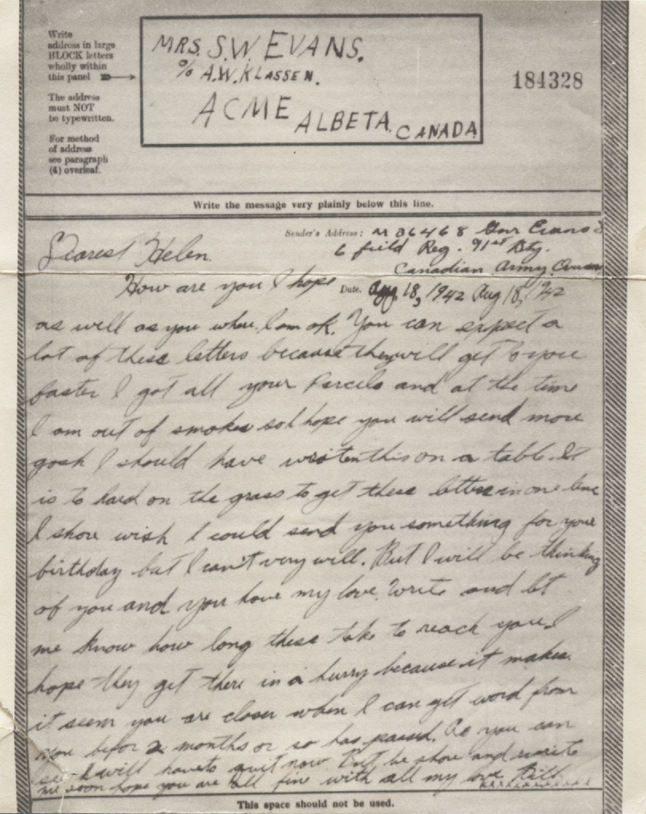 Write
address in large
BLOCK letters
wholly within
this panel
The address
must NOT
be typewritten.
For method
of address
see paragraph
(4) overleaf.
MRS. S.W. EVANS.
% A.W. KLASSEN.
ACME ALBETA. CANADA
184328
Write the message very plainly below this line.
Sender's Address: M 36468 Gnr Evans S
6 field Reg. 91st Bty.
Canadian Army Overseas
Dearest Helen
How are you I hope
Date. Aug 18, 1942 Aug 18, 1942
as well as you where I am ok. You can expect a
lot of these letters because they will get to you
faster I got all your Parcels and at the time
I am out of smokes so I hope you will send more
gosh I should have written this on a table. It
is to hard on the grass to get these letters in one line
I shore wish I could send you something for your
birthday but I can't very well. But I will be thinking
of you and you have my love. Write and let
me know how long these take to reach you. I
hope they get there in a hurry because it makes
it seem you are closer when I can get word from
you befor 2 months or so has passed. As you can
see I will have to quit now But be shore and write to
me soon hope you are all fine with all my love Bill
This space should not be used.